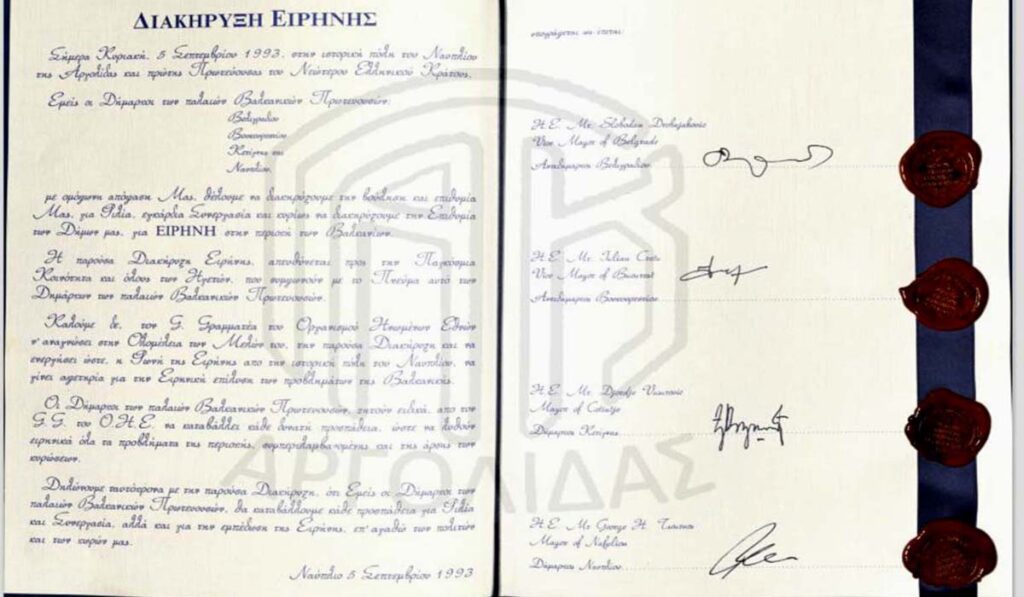 ΔΙΑΚΗΡΥΞΗ ΕΙΡΗΝΗΣ
Σήμερα Κυριακή, 5 Σεπτεμβρίου 1993, στην ιστορική πόλη του Ναυπλίου
της Αργολίδας και πρώτης Πρωτεύουσας του Νεώτερου Ελληνικού Κράτους,
Εμείς οι Δήμαρχοι των παλαιών Βαλκανικών Πρωτευουσών:
Βελιγραδίου
Βουκουρεστίου
Κετίγνης και
Ναυπλίου,
με ομόφωνη απόφαση Μας, θέλουμε να διακηρύξουμε την βούληση και επιθυμία
Μας, για Φιλία, εγκάρδια Συνεργασία και κυρίως να διακηρύξουμε την Επιθυμία
των Δήμων μας, για ΕΙΡΗΝΗ στην περιοχή των Βαλκανίων.
Η παρούσα Διακήρυξη Ειρήνης, απευθύνεται προς την Παγκόσμια
Κοινότητα και όλους των Ηγετών, που συμφωνούν με το Πνεύμα αυτό των
Δημάρχων των παλαιών Βαλκανικών Πρωτευουσών.
Καλούμε δε, τον G. Γραμματέα του Οργανισμού Ηνωμένων Εθνών
ν' αναγνώσει στην Ολομέλεια των Μελών του, την παρούσα Διακήρυξη και να
ενεργήσει ώστε, η Φωνή της Ειρήνης απο την ιστορική πόλη του Ναυπλίου, να
γίνει αφετηρία για την Ειρηνική επίλυση των προβλημάτων της Βαλκανικής.
Οι Δήμαρχοι των παλαιών Βαλκανικών Πρωτευουσών, ζητούν ειδικά, απο τον
G.G. του Ο.Η.Ε. να καταβάλλει κάθε δυνατή προσπάθεια, ώστε να λυθούν
ειρηνικά όλα τα προβλήματα της περιοχής, συμπεριλαμβανομένης και της άρσης των
κυρώσεων.
Δηλώνουμε ταυτόχρονα με την παρούσα Διακήρυξη, ότι Εμείς οι Δήμαρχοι των
παλαιών Βαλκανικών Πρωτευουσών, θα καταβάλλουμε κάθε προσπάθεια για Φιλία
και Συνεργασία, αλλά και για την εμπέδωση της Ειρήνης, επ' αγαθώ των πολιτών
και των χωρών μας.
Ναύπλιο 5 Σεπτεμβρίου 1993
υπογράφεται ως έπεται
H.E. Mr. Slobodan
Vice Mayor of Belgrade
Αντιδήμαρχος Βελιγραδίου
H.E. Mr. Iulian
Vice Mayor of
Αντιδήμαρχος Βουκουρεστίου
H.E. Mr. Djordje
Mayor of Cetinje
Δήμαρχος Κετίγνης
H.E. Mr George H. Tsournos
Mayor of Nafplion
Δήμαρχος Ναυπλίου
ΑΡΓΟΛΙΔΑΣ